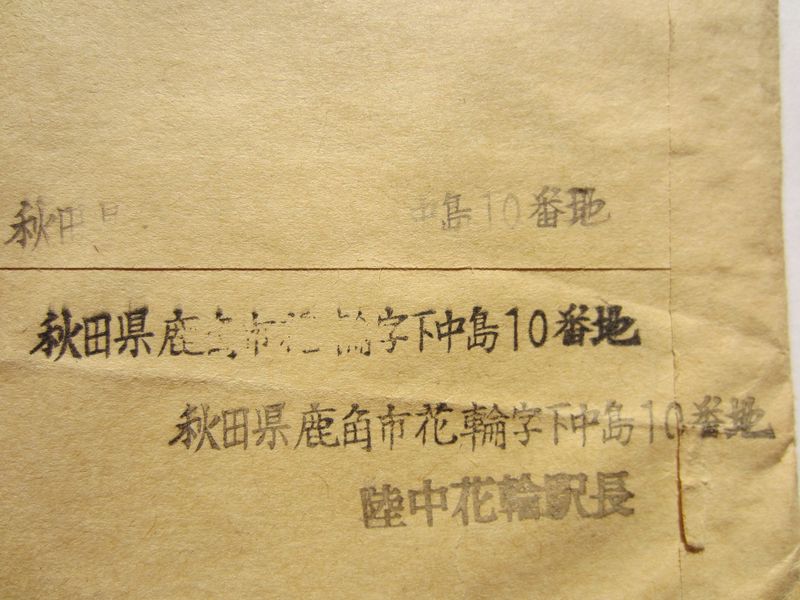 秋田県 中島10番地
秋田県鹿角市花輪字下中島10番地
秋田県鹿角市花輪字下中島10番地
陸中花輪駅長